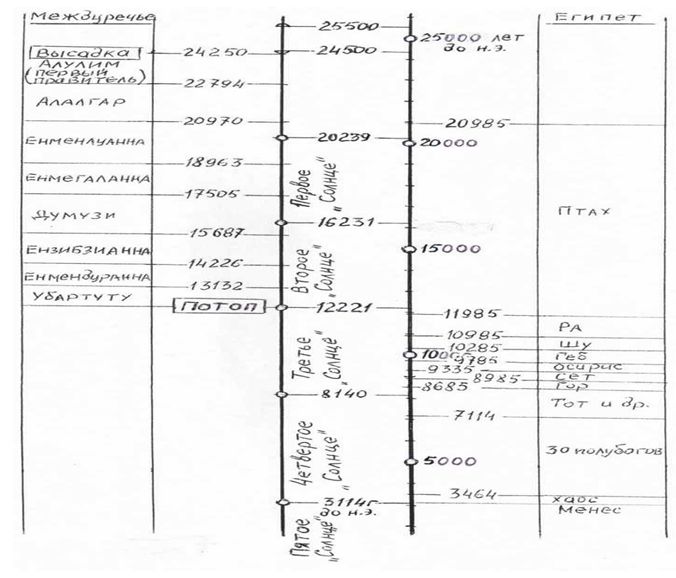 Междуречье
25500
Египет
25000 лет
до н.э.
Высадка
24250
24500
Алулим
(первый
правитель)
22794
Алалгар
20970
20985
20239
20000
Енменлуанна
18963
Енмегаланна
Первое
„Солнце"
17505
Думузи
16231
Птах
15687
15000
Ензибзианна
14226
Второе
„Солнце"
Енмендуранна
13132
Убартуту
Потоп
12221
11985
Ра
10985
Шу
10285
Геб
9785
Третье
„Солнце"
осирис
9335
Сет
8985
Гор
8685
8140
Тот и др.
7114
Четвертое
„Солнце"
30 полубогов
5000
3464
хаос
3114г
до н.э.
Менес
Пятое
„Солнце"